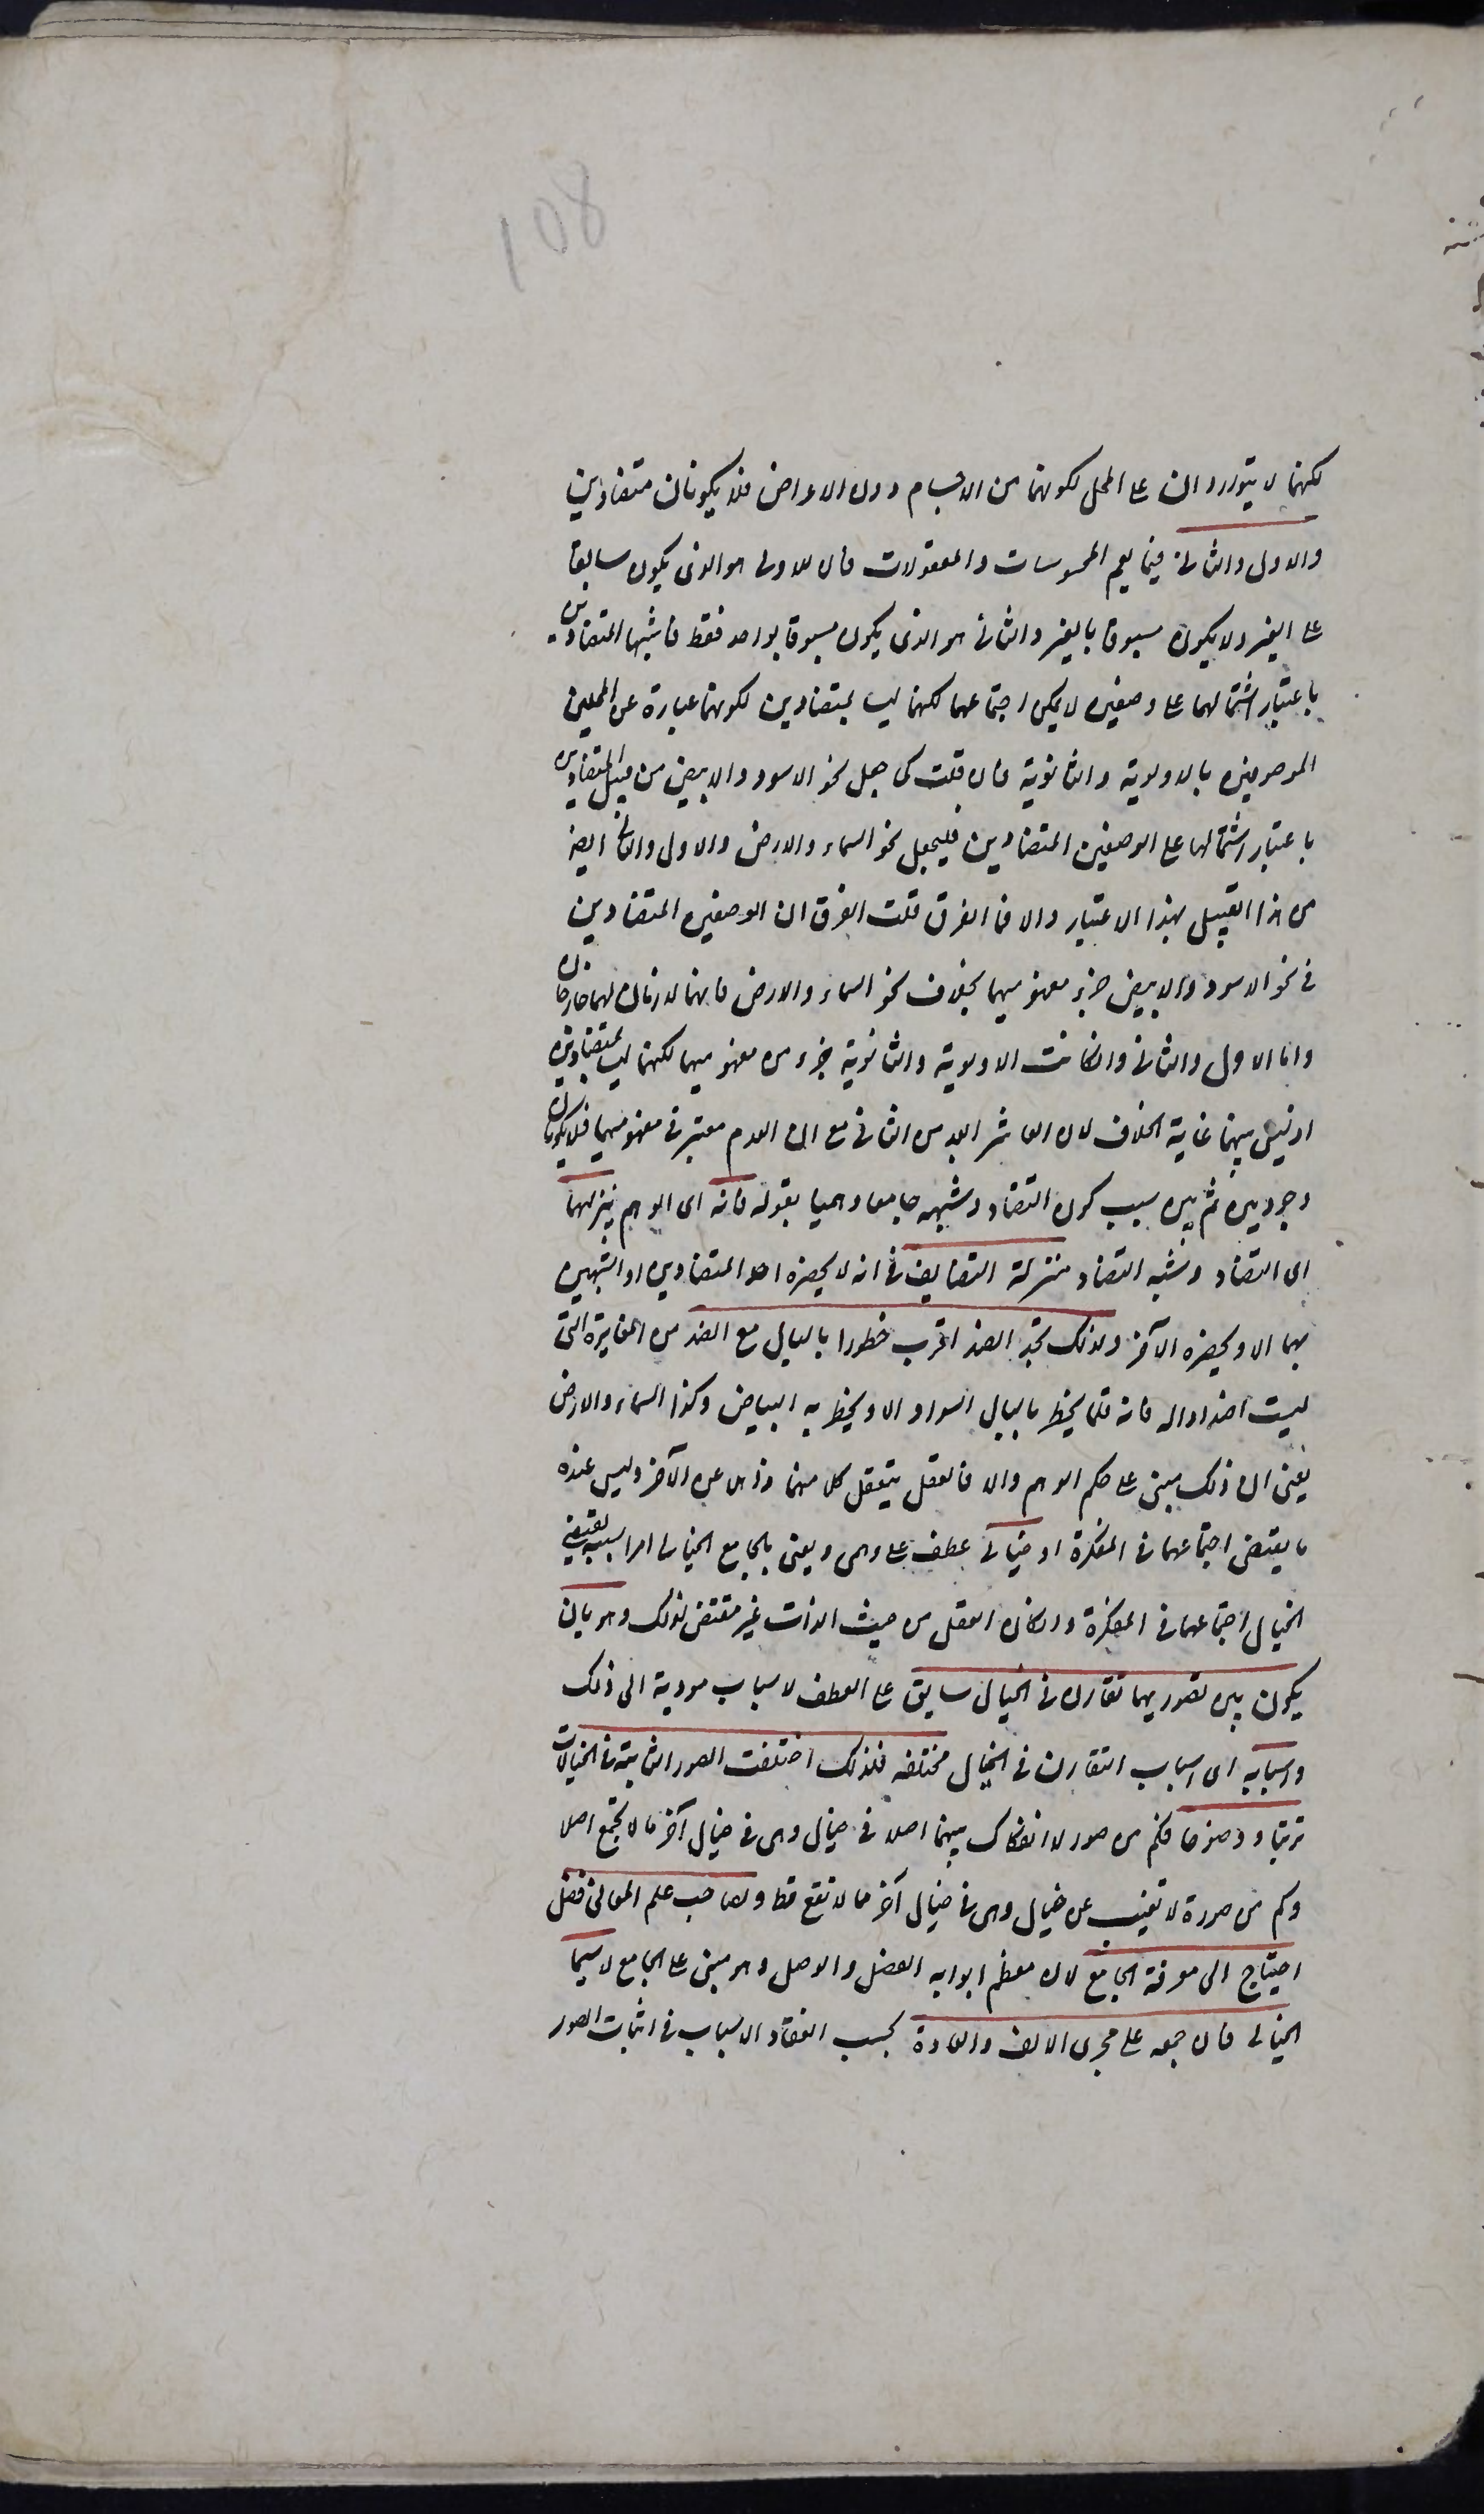 108
لكنهما لا يتواردان على المحل لكونهما من الاجسام دون الاعراض فلا يكونان متضادين
والاول والثاني فيما يعم المحسوسات والمعقولات فان الاول هو الذى يكون سابقا
على الغير ولا يكون مسبوقا بالغير والثاني هو الذى يكون مسبوقا بواحد فقط فاشبها المتضادين
باعتبار اشتمالهما على وصفين لا يمكن اجتماعهما لكنهما ليسا بمتضادين لكونهما عبارة عن المحلين
الموصوفين بالاولوية والثانوية فان قلت كما جعل نحو الاسود والابيض من قبيل المتضادين
باعتبار اشتمالهما على الوصفين المتضادين فليجعل نحو السماء والارض والاول والثاني ايضا
من هذا القبيل بهذا الاعتبار والا فما الفرق قلت الفرق ان الوصفين المتضادين
في نحو الاسود والابيض جزء مفهوميهما بخلاف نحو السماء والارض فانهما لازمان لهما خارجان
واما الاول والثاني وان كانت الاولوية والثانوية جزء من مفهوميهما لكنهما ليسا بمتضادين
اذ ليس بينهما غاية الخلاف لان العاشر ابعد من الثاني مع ان العدم معتبر في مفهوميهما فلا يكونان
وجوديين ثم بين سبب كون التضاد وشبهه جامعا وهميا بقوله فانه اى الوهم ينزلهما
اى التضاد وشبه التضاد منزلة التضايف في انه لا يحضره احد المتضادين او الشبهين
بهما الا ويحضره الآخر ولذلك تجد الضد اقرب خطورا بالبال مع الضد من المغايرة التى
ليست اضدادا له فانه قلما يخطر بالبال السواد الا ويخطر به البياض وكذا السماء والارض
يعنى ان ذلك مبنى على حكم الوهم والا فالعقل يتعقل كل منهما ذاهلا عن الآخر وليس عنده
ما يقتضى اجتماعهما في المفكرة او خيالي عطف على وهمى ويعنى بالجامع الخيالى امرا بسببه يقتضى
الخيال اجتماعهما في المفكرة وان كان العقل من حيث الذات غير مقتض لذلك وهو بان
يكون بين تصوريهما تقارن في الخيال سابق على العطف لاسباب مودية الى ذلك
واسبابه اى اسباب التقارن في الخيال مختلفه فلذلك اختلفت الصور الثابتة في الخيالات
ترتبا ووضوحا فكم من صور لا انفكاك بينهما اصلا في خيال وهى في خيال آخر مما لا تجتمع اصلا
وكم من صورة لا تغيب عن خيال وهى في خيال آخر مما لا تقع قط ولصاحب علم المعانى فضل
احتياج الى معرفة الجامع لان معظم ابوابه الفصل والوصل وهو مبنى على الجامع لا سيما
الخيالى فان جمعه على مجرى الالف والعادة بحسب انعقاد الاسباب في اثبات الصور